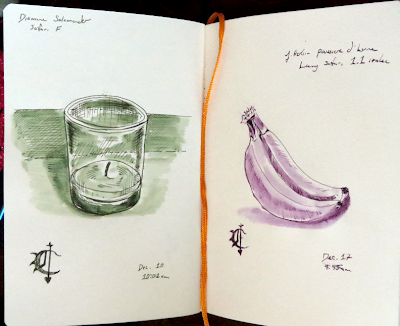 Diamine Salamander
Safari F
J. Herbin poussière de lune
Lamy Safari 1.1 italic
Dec. 10
10:02am
Dec. 17
9:55am